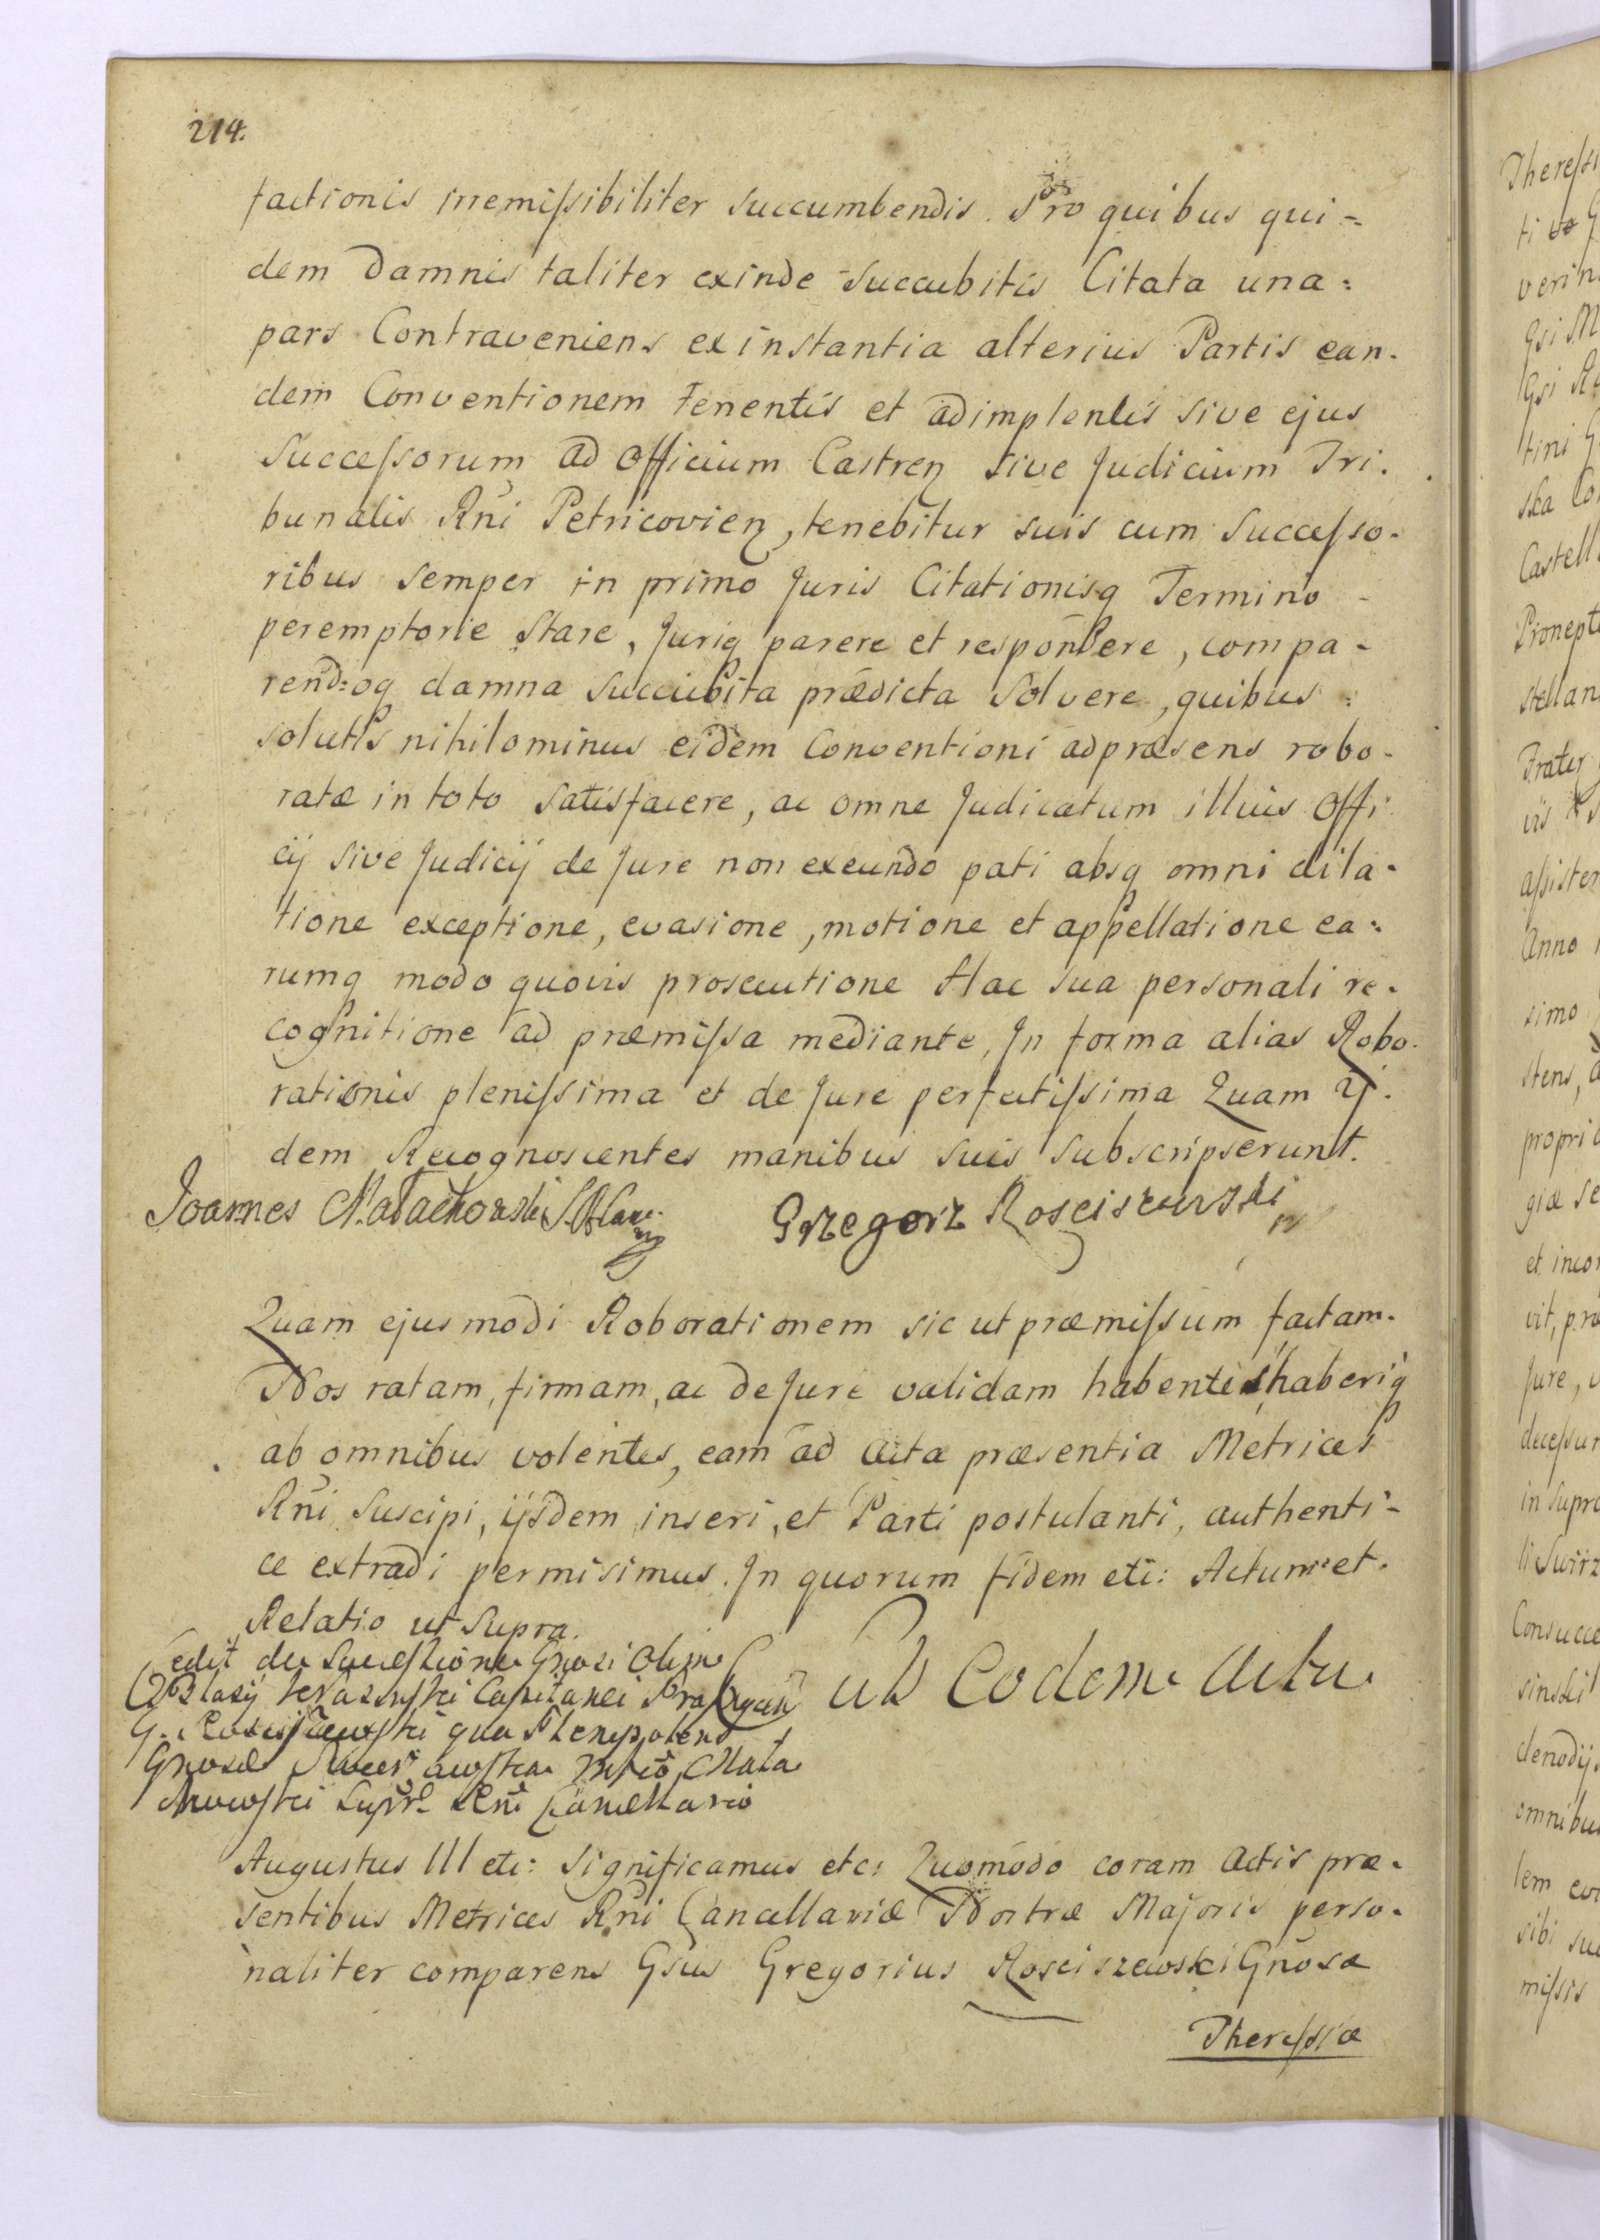 214.
factionis irremissibiliter succumbendis. Pro quibus qui=
dem damnis taliter exinde succubitis Citata una:
pars Contraveniens ex instantia alterius Partis ean-
dem Conventionem tenentis et adimplentis sive ejus
Successorum ad Officium Castren sive Judicium Tri-
bunalis Rñi Petricovien, tenebitur suis cum Successo-
ribus semper in primo Juris Citationisq Termino -
peremptorie Stare, Juriq parere et respondere, compa-
rend:oq damna succubita prædicta Solvere, quibus:
solutis nihilominus eidem Conventioni ad præsens robo-
ratæ in toto satisfacere, ac omne Judicatum illius Offi
cij sive Judicij de Jure non exeundo pati absq omni dila-
tione exceptione, evasione, motione et appellatione ea:
rumq modo quovis prosecutione Hac sua personali re-
cognitione ad præmissa mediante, In forma alias Robo-
rationis plenissima et de Jure perfectissima Quam ij-
dem Recognoscentes manibus suis subscripserunt.
Joannes Małachowski
Grzegorz Rosciszewski
Quam ejusmodi Roborationem sic ut præmissum factam-
Nos ratam, firmam, ac de Jure validam habentes, haberiq
ab omnibus volentes, eam ad Acta præsentia Metrices
Rñi Suscipi, ijsdem inseri, et Parti postulanti, authenti-
ce extradi permisimus. In quorum fidem etc: Actum et
Relatio ut Supra.
Cedit de Successione Gnosi Olim
Blasij Krasinski Capitanei
G. Rosciszewski qua Plenipotens
Gnosæ
chowski Supr Rñi Cancellario
ab Eodem Actu
Augustus III etc: Significamus etc: Quomodo coram Actis præ-
sentibus Metrices Rñi Cancellariæ Nostræ Majoris perso-
naliter comparens Gsus Gregorius Rosciszewski Gnosæ
Theressiæ
Theressi
ti
verin
Gsi M
Gsi
tini G
ska Co
Castell
Pronept
stellan
Frater
vis
assisten
Anno
simo
stens, a
propri
giæ se
et inco
vit, pro
Jure, v
decessur
in supra
li Swirz
Consucce
sinski
denodij
omnibu
lem
sibi su
missis